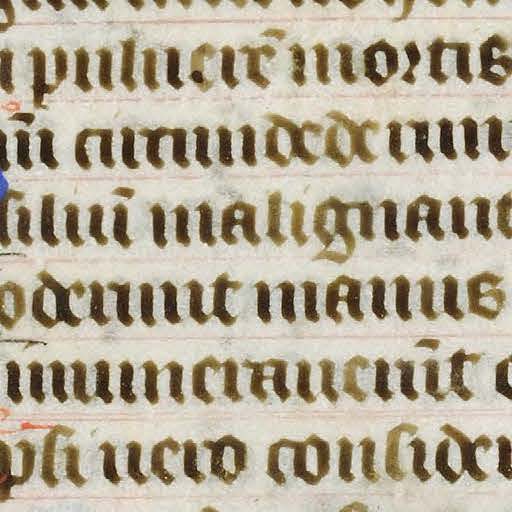 puluerē mortis
m̄ circumdederun
siliū malignant
oderunt manus
inumerauerūt o
psi uero consider